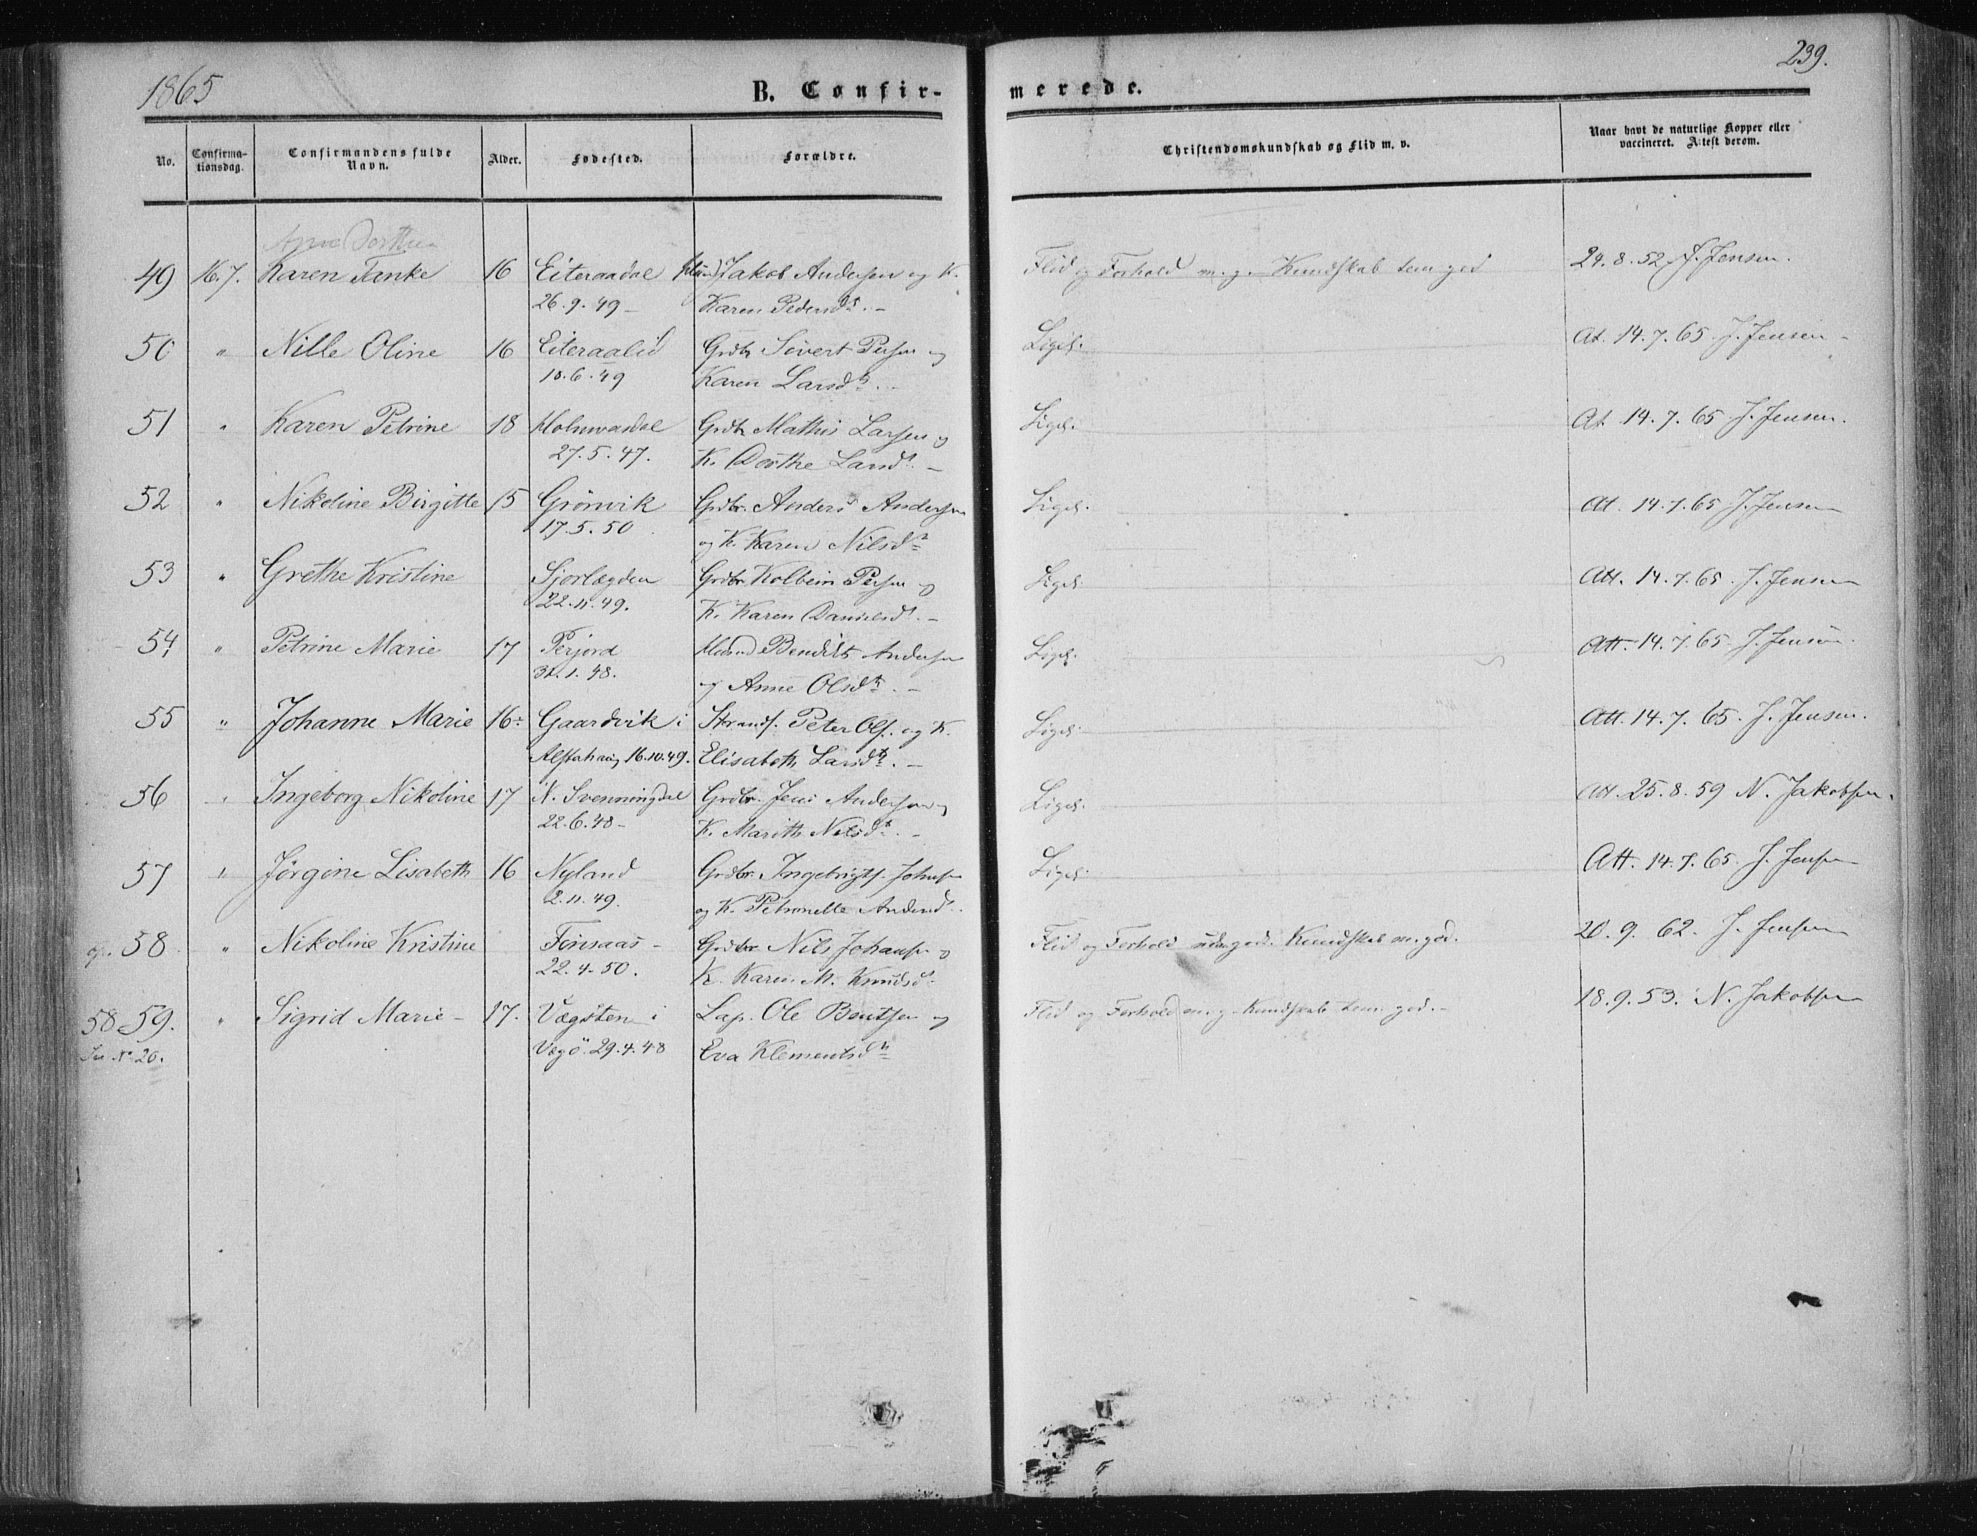 1865
B. Confir-
merede.
239.
No.
Confirma-
tionsdag.
Confirmandens fulde
Navn.
Alder.
Fødested.
Forældre.
Christendomskundskab og Flid m. v.
Naar havt de naturlige Kopper eller
vaccineret. Attest derom.
Anne Dorthea
49 16.7. Karen Tanke 16 Eiteraadal Jakob Andersen og K. Flid og Forhold m.g. Kundskab tem. god 24.8.52 J. Jensen.
26.9.49 Karen Pedersd.
50 " Nille Oline 16 Eiteraalid Grdbr Sivert Persen og Ligel. At. 14.7.65 J. Jensen
10.6.49 Karen Larsdtr.
51 " Karen Petrine 18 Grdbr Mathis Larsen og Ligel. At. 14.7.65 J. Jensen.
27.5.47. K. Dorthe Larsd.
52 " Nikoline Birgitte 15 Grönvik Grdbr. Anders Andersen Ligel. At. 14.7.65 J. Jensen
17.5.50 og K. Karen Nilsdtr
53 " Grethe Kristine Sjorlægden Grdbr Kolbein Persen og Ligel. Att. 14.7.65. J. Jensen
22.11.49. K. Karen Danielsd.
54 " Petrine Marie 17 Perjord Bendikt Andersen Ligel. Att. 14.7.65. J. Jensen.
31.1.48. og Anne Olsdtr.
55 " Johanne Marie 16 Gaardvik i Strands. Peter Ols. og K. Ligel. Att. 14.7.65. J. Jensen.
Alstahaug 16.10.49. Elisabeth Larsdtr.
56 " Ingeborg Nikoline 17 N. Svenningdal Grdbr. Jens Andersen og Ligel. Att. 25.8.59 N. Jakobsen.
22.6.48 K. Marith Nilsdtr.
57 " Jörgine Lisabeth 16 Nyland Grdbr. Ingebrigt Johnsen Ligel. Att. 14.7.65. J. Jensen
2.11.49. og K. Petronelle Andersd.
op. 58 " Nikoline Kristine Finsaas Grdbr Nils Johansen og Flid og Forhold udm. god. Kundskab m. god. 20.9.62. J. Jensen
22.4.50. K. Karen M. Knudsd.
58 59. " Sigrid Marie 17. Vægsten i Lap. Ole Bentsen og Flid og Forhold m.g. Kundskab tem. god. 18.9.53. N. Jakobsen
See No 20. Vægö. 29.4.48 Eva Klementsdtr